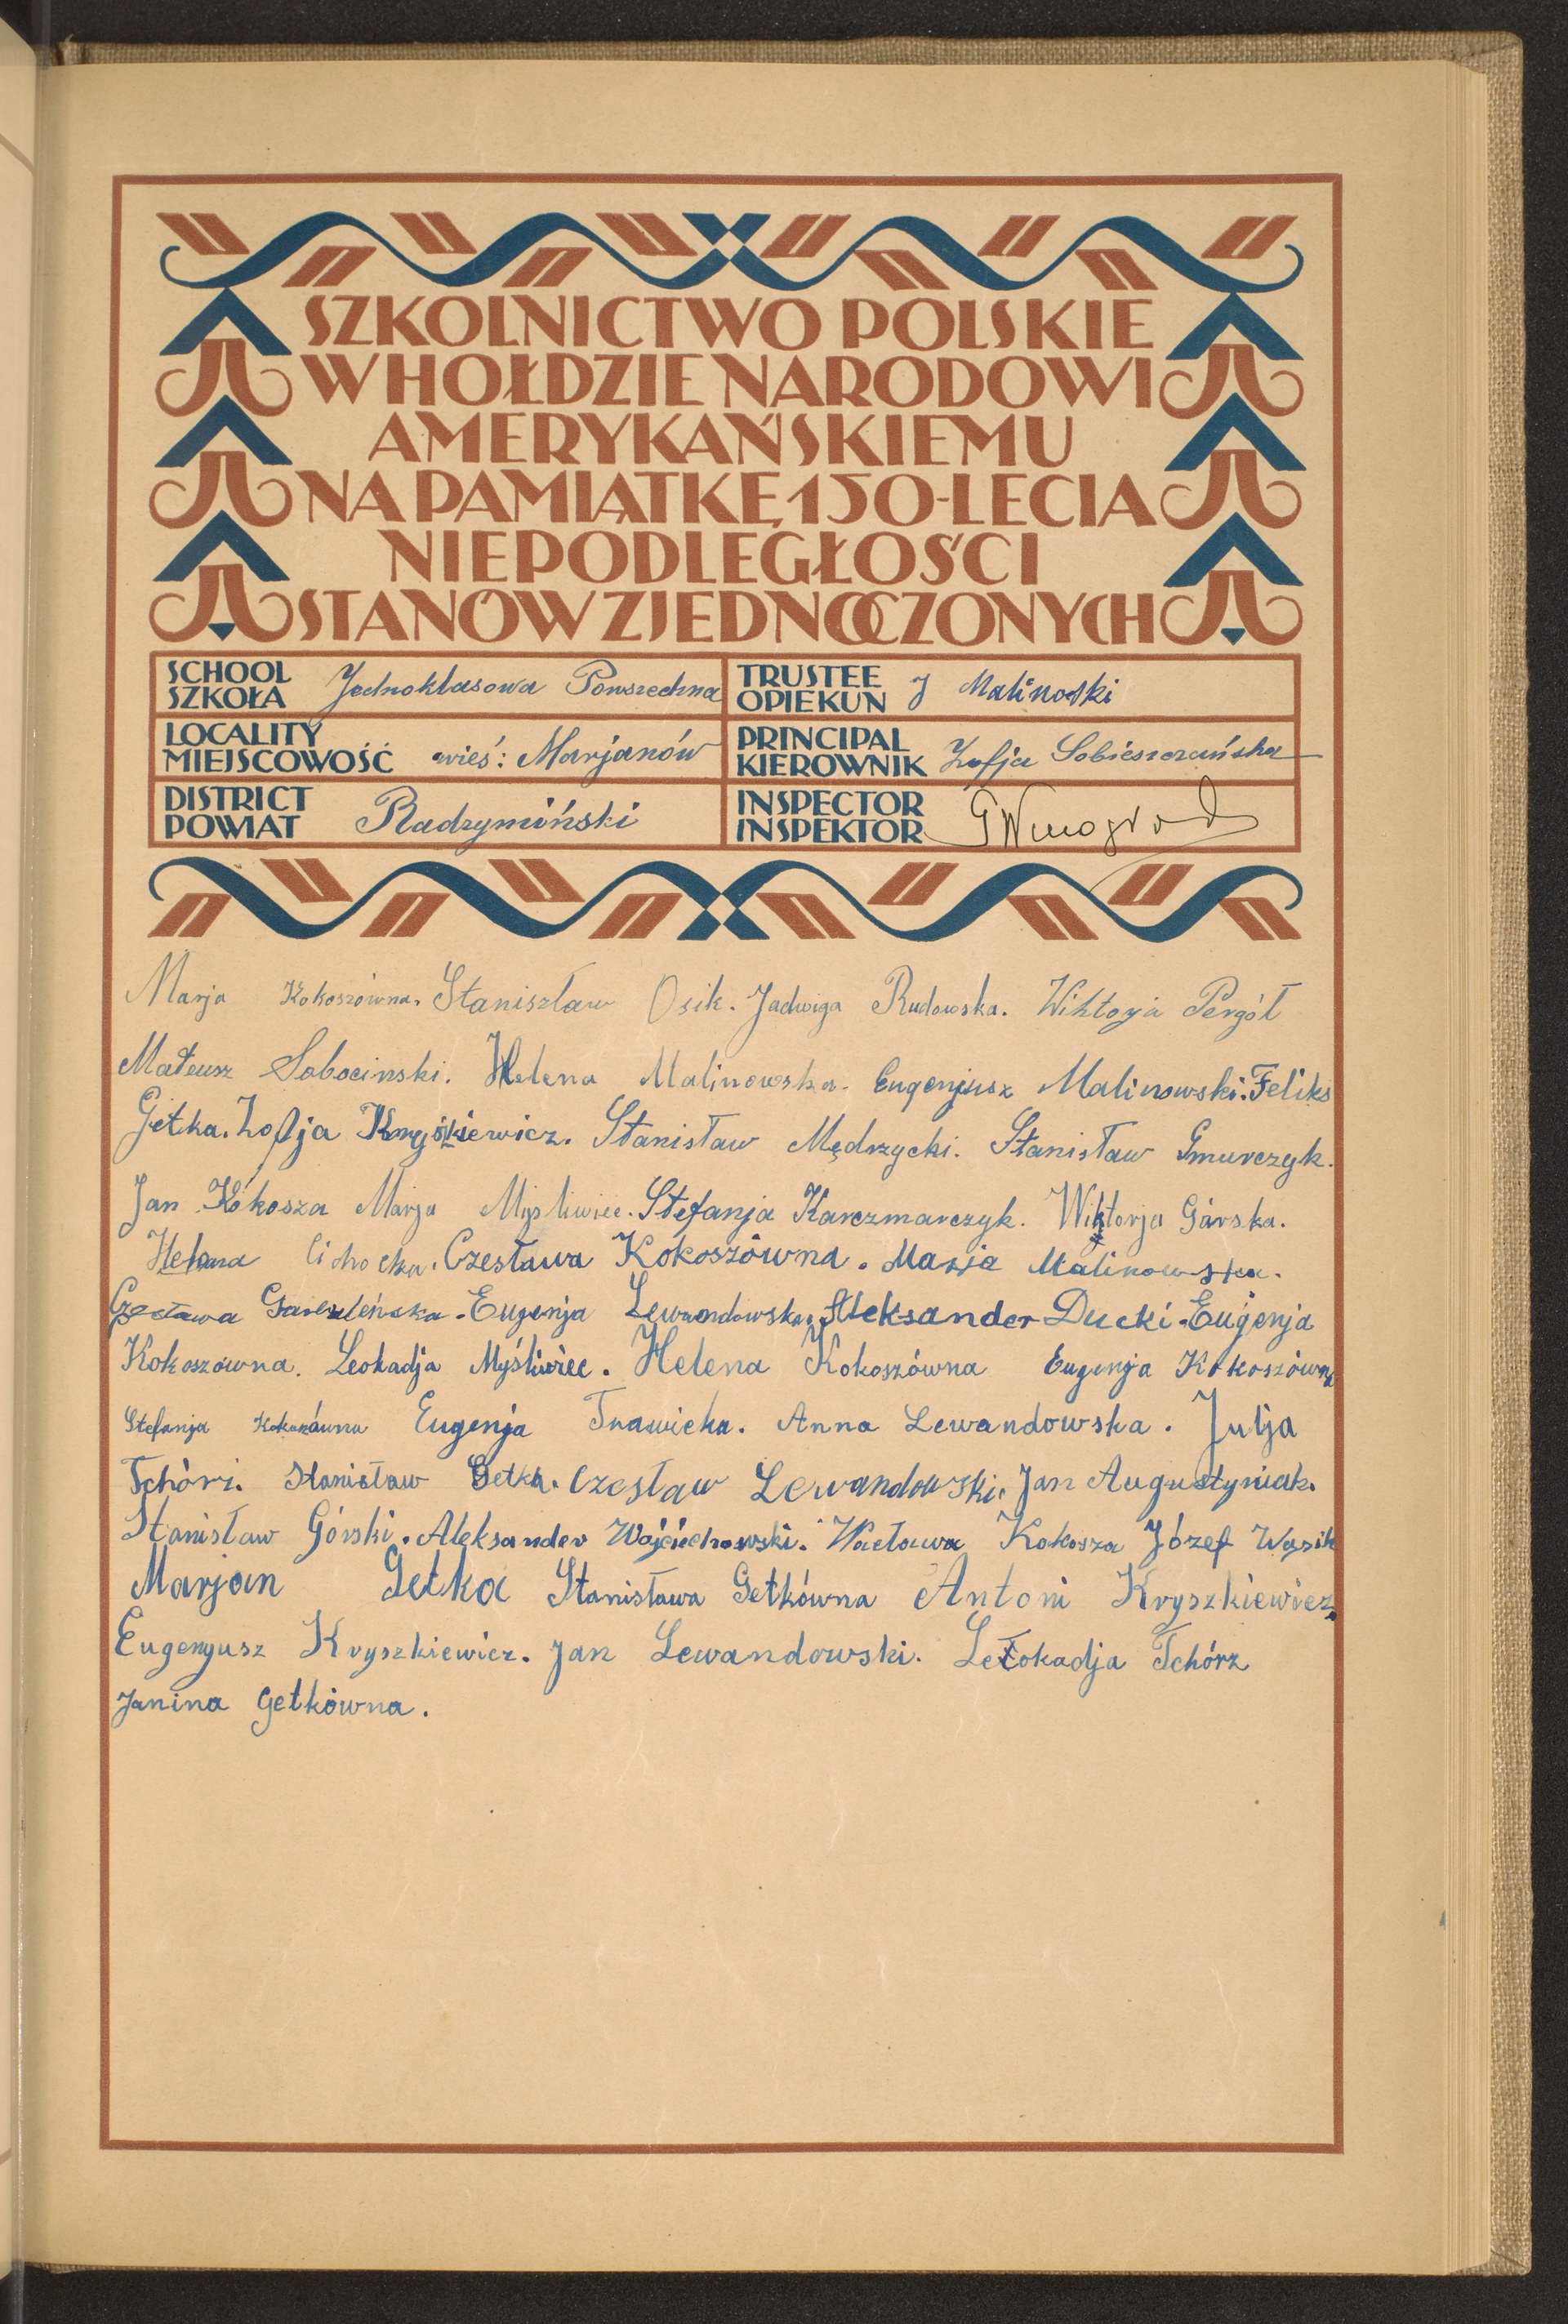 SZKOLNICTWO POLSKIE
W HOŁDZIE NARODOWI
AMERYKAŃSKIEMU
NA PAMIĄTKĘ 150-LECIA
NIEPODLEGŁOŚCI
STANÓW ZJEDNOCZONYCH
SCHOOL
SZKOŁA Jednoklasowa Powszechna
TRUSTEE
OPIEKUN J Malinowski
LOCALITY
MIEJSCOWOŚĆ wieś: Marjanów
PRINCIPAL
KIEROWNIK Zofja Sobieszczańska
DISTRICT
POWIAT Radzymiński
INSPECTOR
INSPEKTOR
Marja Kokoszówna. Staniszław Osik. Jadwiga Rudowska. Wiktorja Pergół
Mateusz Sobocinski. Helena Malinowska. Eugenjusz Malinowski. Feliks
Getka. Zofja Stanisław Mędrzycki. Stanisław Gmurczyk.
Jan Kokosza Marja Myśliwiec. Stefanja Karczmarczyk. Wiktorja Górska.
Helena Cichocka. Czesława Kokoszówna. Marja Malinowska.
Czesława Eugenja Lewandowska. Aleksander Ducki. Eugenja
Kokoszówna. Leokadja Myśliwiec. Helena Kokoszówna Eugenja Kokoszówna
Stefanja Kokoszówna Eugenja Trawicka. Anna Lewandowska. Julja
Tchórz. Stanisław Getka. Czesław Lewandowski. Jan Augustyniak.
Stanisław Górski. Aleksander Wojciechowski. Wacława Kokosza Józef Wąsik
Marjan Getka Stanisława Getkówna Antoni Kryszkiewicz.
Eugenyusz Kryszkiewicz. Jan Lewandowski. Leokadja Tchórz
Janina Getkówna.